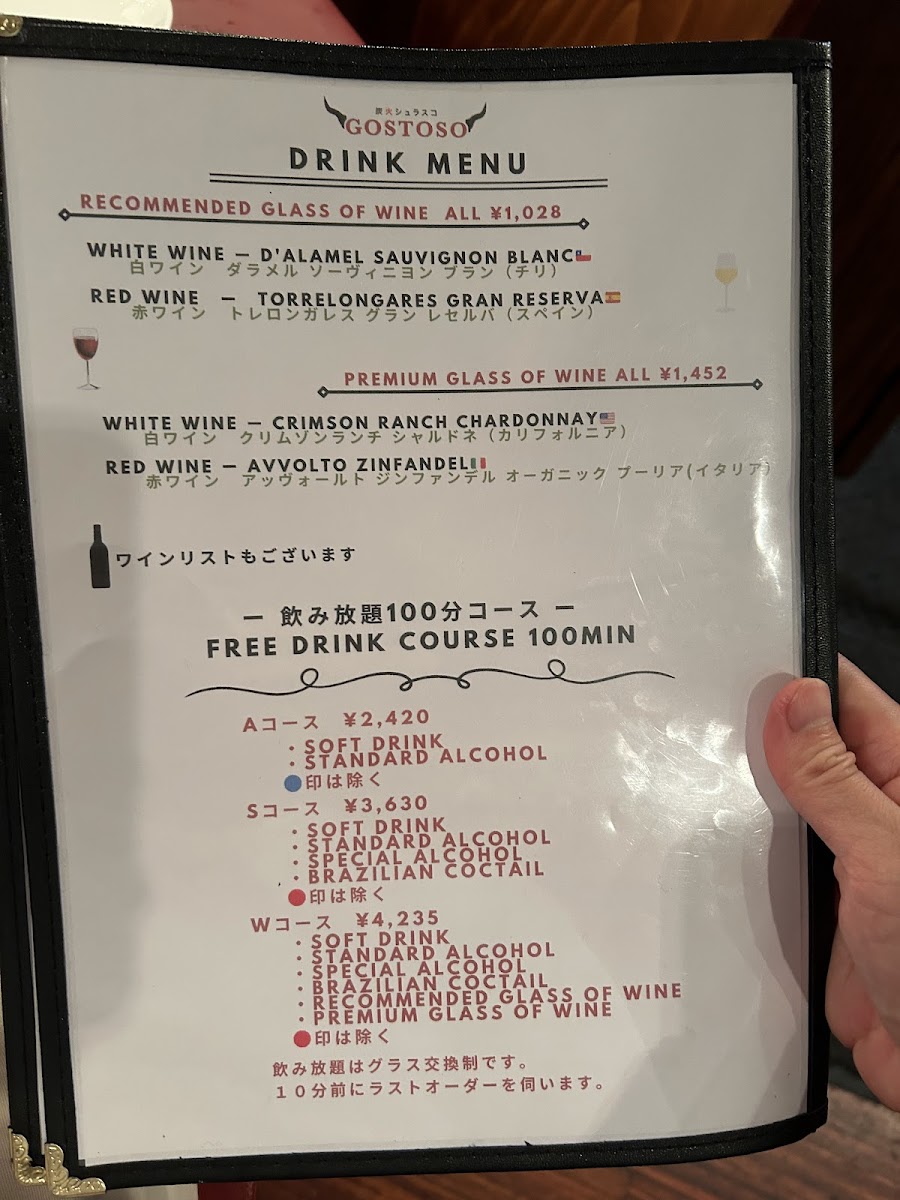 炭火シュラスコ
GOSTOSO
DRINK MENU
RECOMMENDED GLASS OF WINE ALL ¥1,028
WHITE WINE — D'ALAMEL SAUVIGNON BLANC
白ワイン ダラメル ソーヴィニヨン ブラン（チリ）
RED WINE — TORRELONGARES GRAN RESERVA
赤ワイン トレロンガレス グラン レセルバ（スペイン）
PREMIUM GLASS OF WINE ALL ¥1,452
WHITE WINE — CRIMSON RANCH CHARDONNAY
白ワイン クリムゾンランチ シャルドネ（カリフォルニア）
RED WINE — AVVOLTO ZINFANDEL
赤ワイン アッヴォールト ジンファンデル オーガニック プーリア(イタリア)
ワインリストもございます
— 飲み放題100分コース —
FREE DRINK COURSE 100MIN
Aコース ¥2,420
・SOFT DRINK
・STANDARD ALCOHOL
●印は除く
Sコース ¥3,630
・SOFT DRINK
・STANDARD ALCOHOL
・SPECIAL ALCOHOL
・BRAZILIAN COCTAIL
●印は除く
Wコース ¥4,235
・SOFT DRINK
・STANDARD ALCOHOL
・SPECIAL ALCOHOL
・BRAZILIAN COCTAIL
・RECOMMENDED GLASS OF WINE
・PREMIUM GLASS OF WINE
●印は除く
飲み放題はグラス交換制です。
１０分前にラストオーダーを伺います。